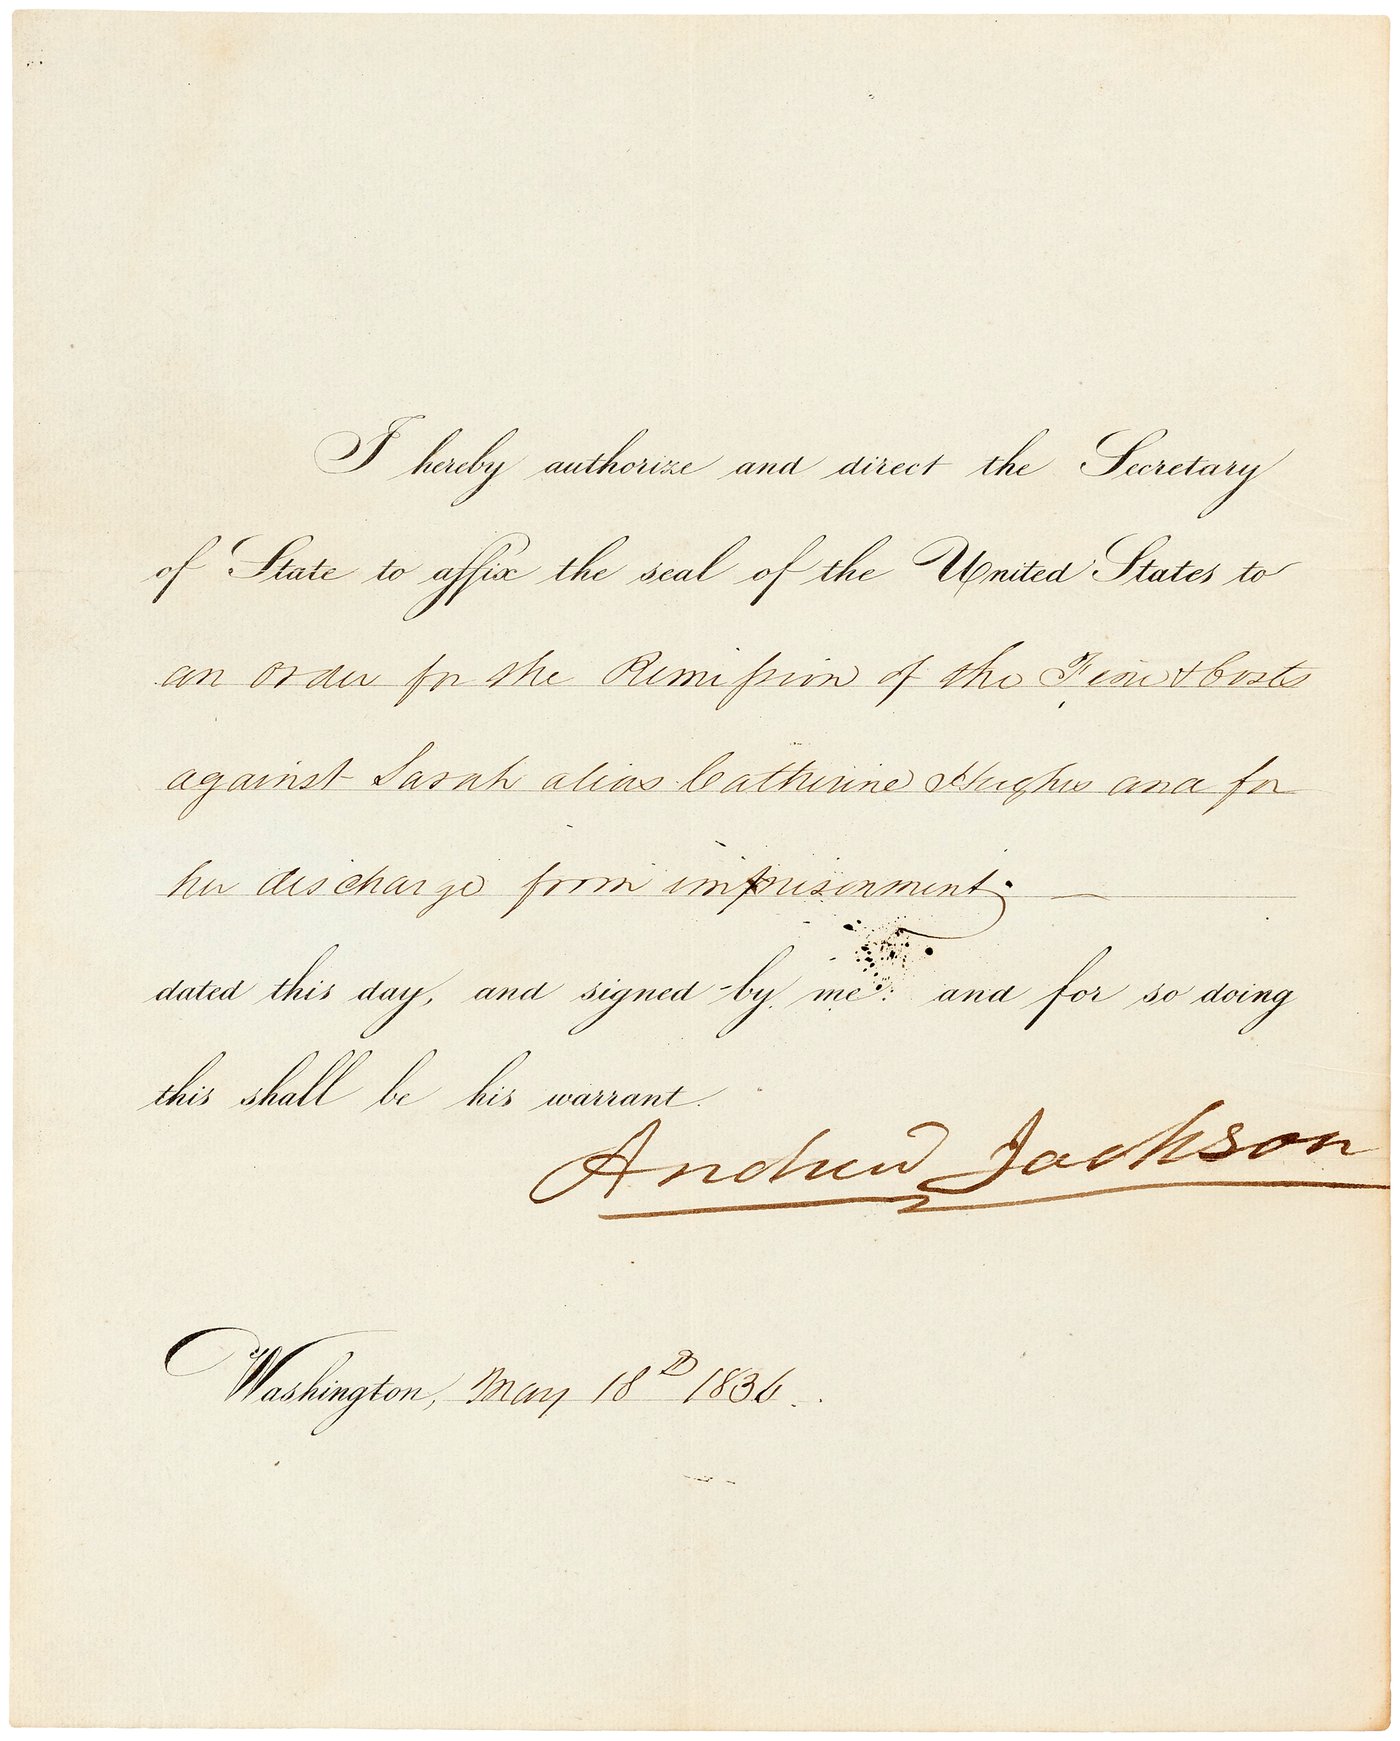 I hereby authorize and direct the Secretary
of State to affix the seal of the United States to
an order for the Remission of the Fine & Costs
against Sarah alias Catherine Hughes and for
her discharge from imprisonment.
dated this day, and signed by me: and for so doing
this shall be his warrant.
Andrew Jackson
Washington, May 18th 1836.